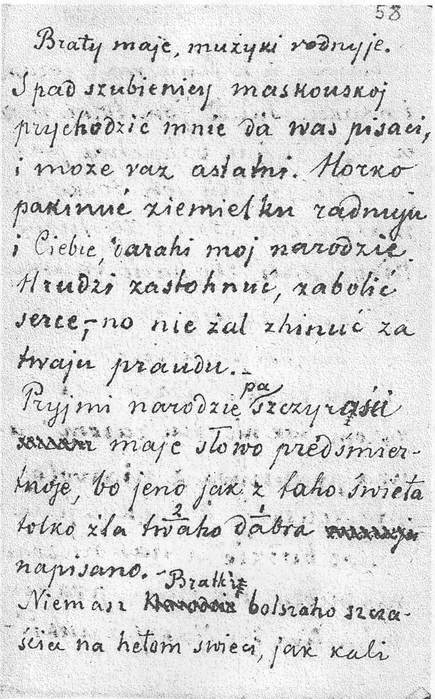 58
Braty maje, mużyki rodnyje.
Spad szubienicy maskouskoj
prychodzić mnie da was pisaci,
i może raz astatni. Horko
pakinuć ziemielku radnuju
i Ciebie, darahi moj narodzie.
Hrudzi zastohnuć, zabolić
serce,- no nie żal zhinuć za
twaju praudu.-
Pryjmi narodzie pa szczyrości
maje słowo predśmier-
tnoje, bo jeno jak z taho świeta
tolko dla twaho dabra
napisano.
Niemasz Bratkie bolszaho szcza-
ścia na hetom świeci, jak kali